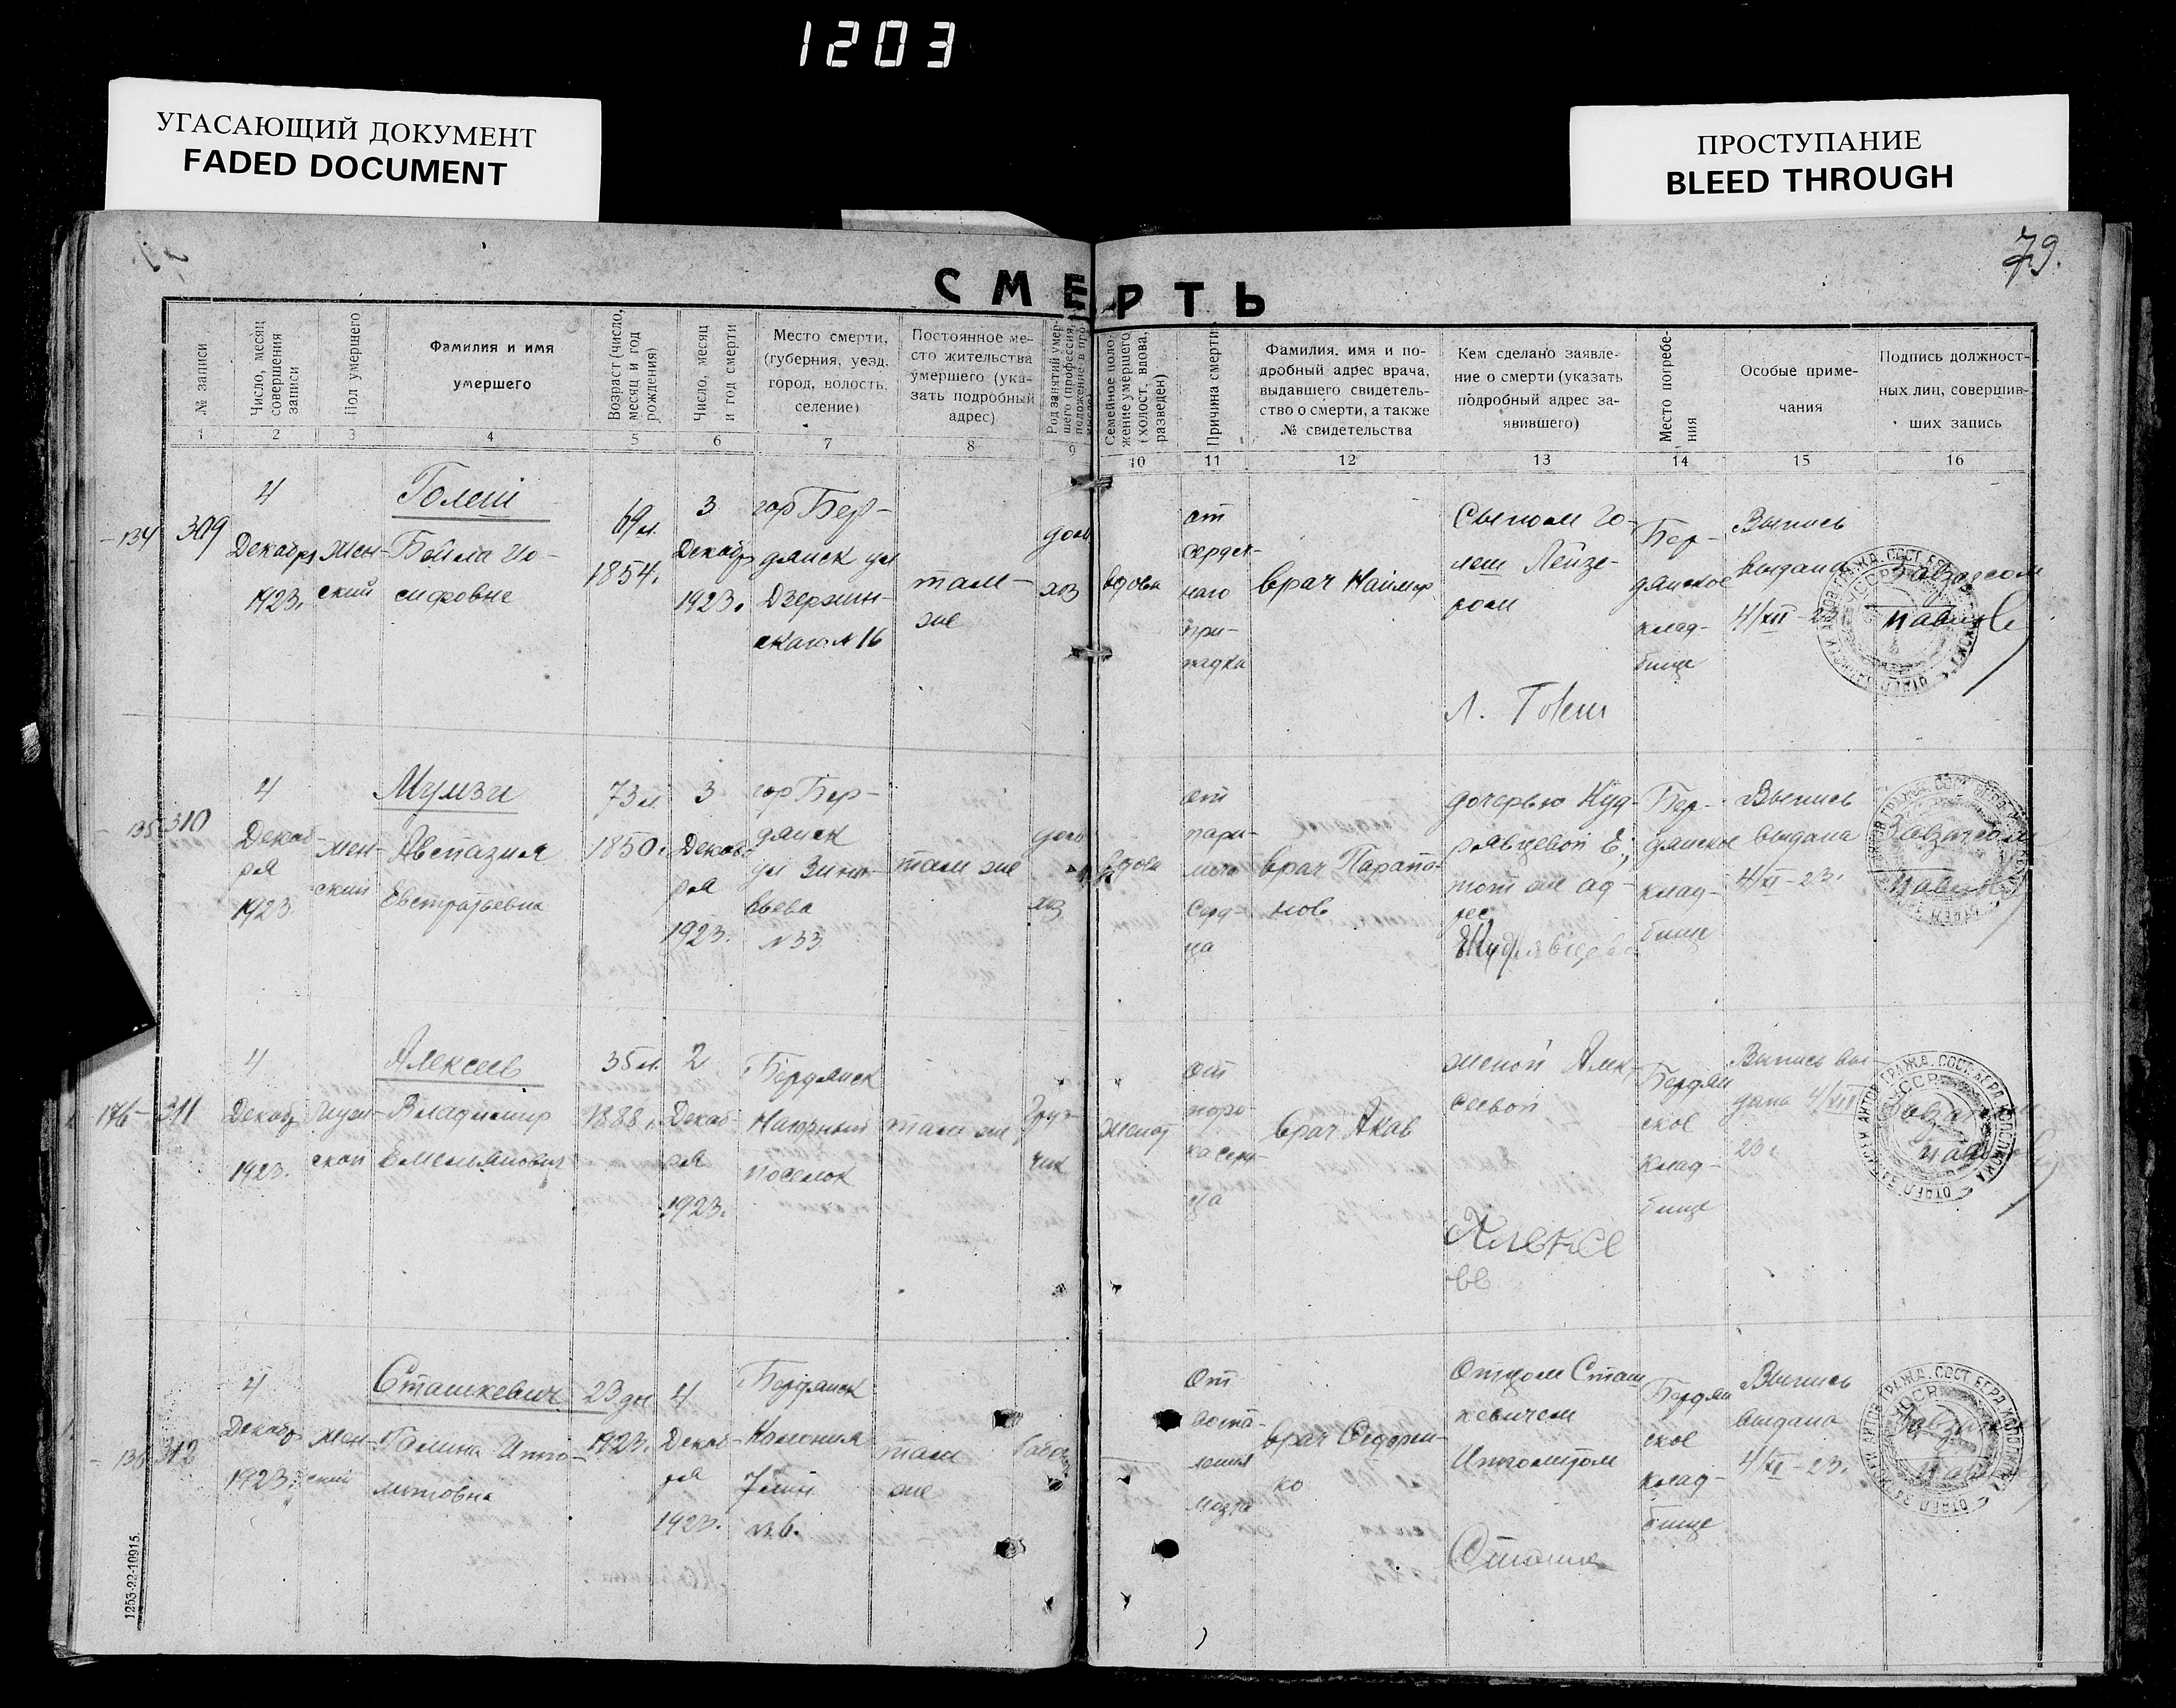 1203
УГАСАЮЩИЙ ДОКУМЕНТ
FADED DOCUMENT
ПРОСТУПАНИЕ
BLEED THROUGH
79.
СМЕРТЬ
№ записи
Число, месяц совершения записи
Пол умершего
Фамилия и имя
умершего
Возраст (число, месяц и год рождения)
Число, месяц и год смерти
Место смерти,
(губерния, уезд.
город, волость,
селение)
Постоянное ме-
сто жительства
умершего (ука-
зать подробный
адрес)
Род занятий умер-
шего (профессия,
положение в про-
Семейное поло-
жение умершего
(холост, вдова,
разведен)
Причина смерти
Фамилия, имя и по-
дробный адрес врача,
выдавшего свидетель-
ство о смерти, а также
№ свидетельства
Кем сделано заявле-
ние о смерти (указать
подробный адрес за-
явившего)
Место погребе-
ния
Особые приме-
чания
Подпись должност-
ных лиц, совершив-
ших запись
1 2 3 4 5 6 7 8 9 10 11 12 13 14 15 16
134
309
4
Декабря
1923.
жен-
ский
Голеш
Бейла Ио-
сифовна
69 л.
1854.
3
Декабр
1923.
гор Бер-
дянск ул
Дзержин-
ского № 16
там-
же
дом
хоз
вдова
от
сердеч-
наго
при-
падка
врач
Сыном Го-
леш Лейзе-
ром
Л. Голеш
Бер-
дянское
клад-
бище
Выпись
выдана
4/XII-23
Завзагсом
135
310
4
Декаб-
ря
1923.
жен-
ский
Аспазия
Евстратьевна
73 л.
1850.
3
Декаб-
ря
1923.
гор Бер-
дянск
ул Зиновь-
ева
№ 33
там же
дом
хоз
вдова
от
пара-
лича
серд-
ца
врач
дочерью Куд-
рявцевой Е;
тот же ад-
рес
ЕКудрявцева
Бер-
дянское
клад-
бище
Выпись
выдана
4/XI-23.
Завзагсом
176
311
4
Декабр
1923.
Муж-
ской
Алексеев
Владимир
Емельянович
35 л.
1888.
2
Декаб-
ря
1923.
Бердянск
Нагорный
поселок
там же
Груз-
чик
женат
от
поро-
ка серд-
ца
врач
женой Алек-
сеевой
Алексе
ев
Бердян
ское
клад-
бище
Выпись вы-
дана 4/XII
23 г
136
312
4
Декабр
1923.
жен-
ский
Сташкевич
Галина Иппо-
литовна
23 дн
1923.
4
Декаб-
ря
1923.
Бердянск
Колония
№ 6.
там
же
От
воспа-
ления
мозга
врач Сидорен-
ко
Отцом Сташ
кевичем
Ипполитом
Сташке
Бердян
ское
клад-
бище
Выпись
выдана
4/XI-23.
1253-22-10915.